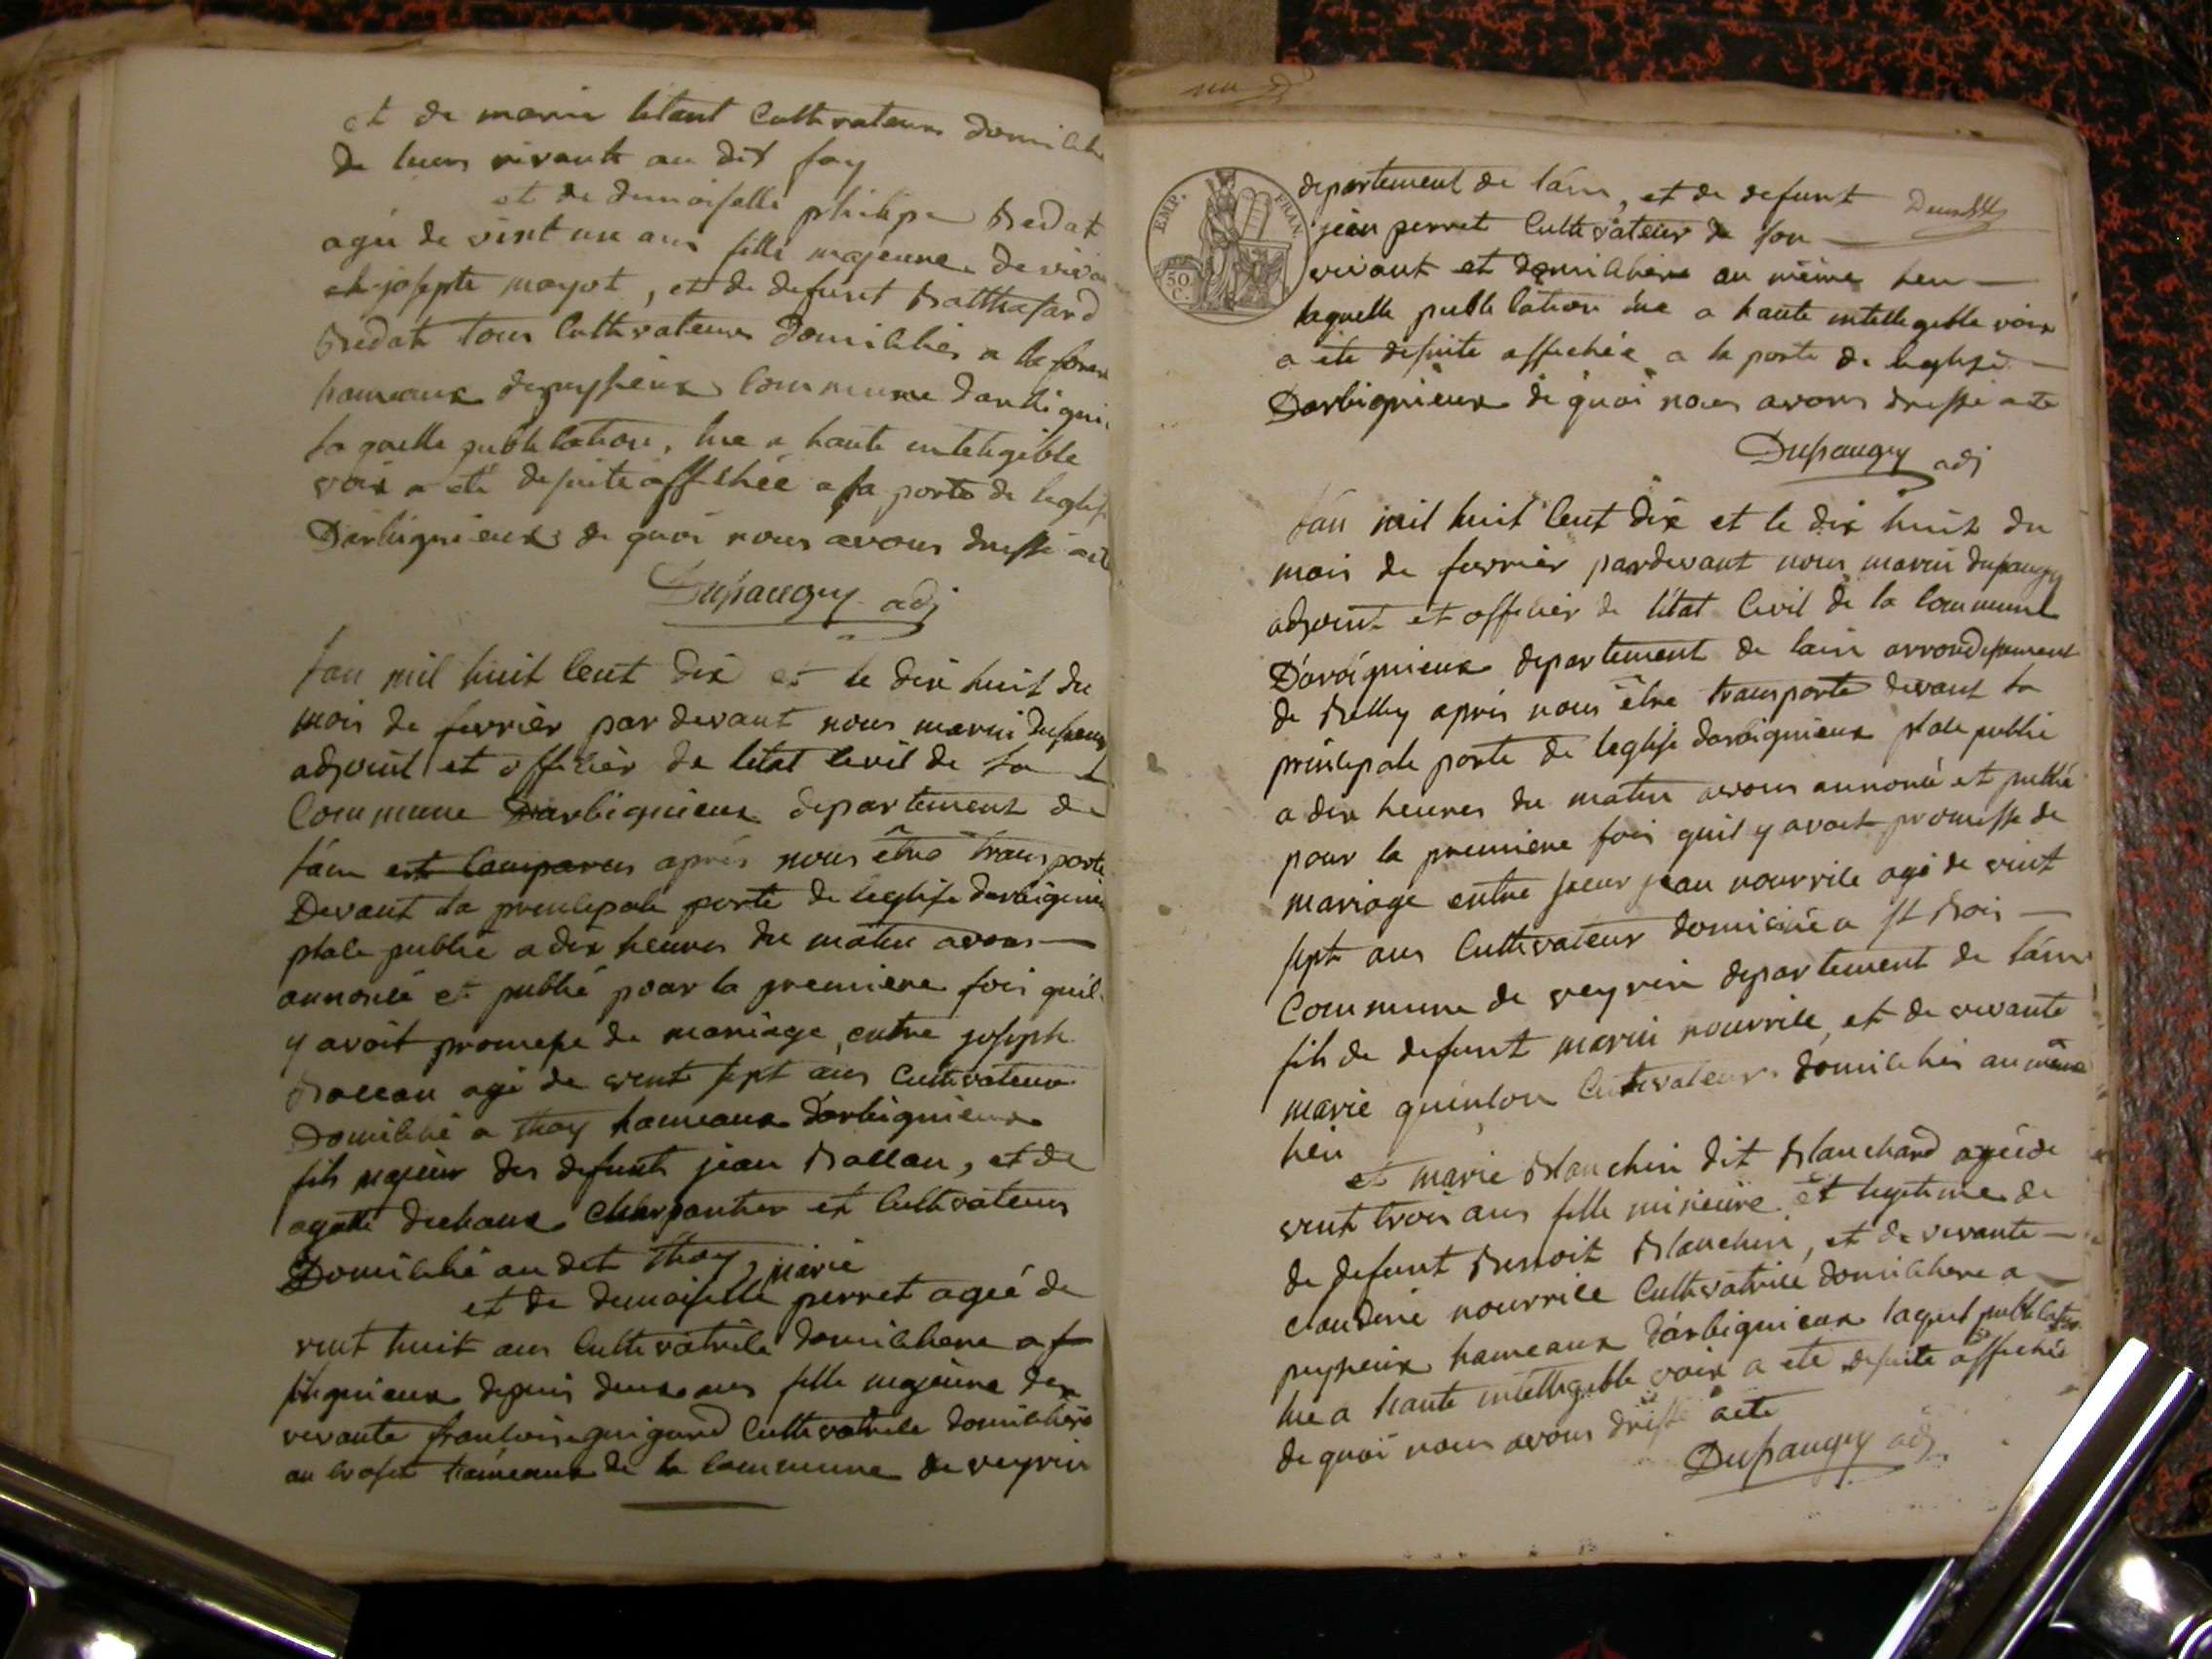 et de marie letant Cultivateurs domicili
de leurs vivants au dit fay
et de demoiselle philipe Bedat
agée de vint un ans fille majeure de viva
josepte mayot, et de defunt Balthasard
Bedat tous Cultivateurs domicilies a
hameaux depeyssieux Commune darbigni
laquelle publication, lue a haute inteligible
voix a été desuite affichée a la porte de leglis
Darbignieux de quoi nous avons dressé acte
Dupaugey adj
Lan mil huit Cent dix et le dix huit du
mois de fevrier par devant nous marin dupaugey
adjoint et officier de letat Civil de la
Commune Darbignieux departement de
lain est Comparus aprés nous être transporte
Devant la principale porte de leglise darbignieu
place public a dix heures du matin avons
annoncé et publié pour la premiere fois quil
y avoit promese de mariage, entre joseph
Ballan agé de vint sept ans Cultivateur
Domicilié a thoy hameaux darbignieux
fils majeur des defunts jean Ballan, et de
agatte dechaux Charpantier et Cultivateurs
Domicilié au dit thoy,
marie
et de demoiselle perret ageé de
vint huit ans Cultivatrice domiciliere a
signieux depuis deux ans fille majeure de
vivante francoise guigard Cultivatrice domiciliere
au hameaux de la Commune de veyrin
EMP. FRAN.
50 C.
departement de lain, et de defunt
jean perret Cultivateur de son
vivant et domiciliere au même lieu
laquelle publication lue a haute intelligible voix
a ete desuite affichée a la porte de leglise
Darbignieux de quoi nous avons dressé acte
Dupaugey adj
Lan mil huit Cent dix et le dix huit du
mois de fevrier pardevant nous marin dupaugey
adjoint et officier de létat Civil de la Commune
Darbignieux departement de lain arrondissement
de Belley aprés nous être transporté devant la
principale porte de leglise darbignieux place public
a dix heures du matin avons annoncé et publié
pour la premiere fois quil y avoit promesse de
mariage entre sieur jean nourrice agé de vint
sept ans Cultivateur domicilié a st Bois
Commune de veyrin departement de lain
fils de defunt marin nourrice, et de vivante
marie guinlon Cultivateurs domiciliés au même
lieu
et marie Blanchin dit Blanchard agée de
vint trois ans fille mineure et legitime de
de defunt Benoit Blanchin, et de vivante
claudine nourrice Cultivatrice domiciliere a
peyssieux hameaux darbignieux laquel publication
lue a haute intelligible voix a ete desuite affichée
de quoi nous avons dressé acte
Dupaugey adj